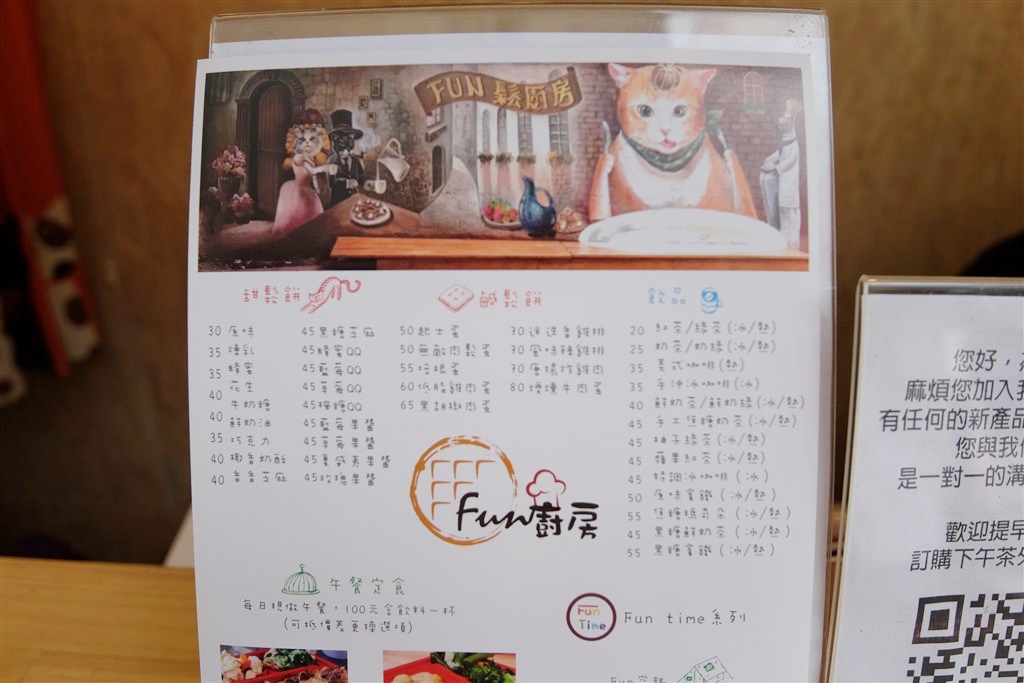 FUN 鬆廚房
甜鬆餅
30 原味
35 煉乳
35 蜂蜜
40 花生
40 牛奶糖
40 鮮奶油
35 巧克力
40 椰香奶酥
40 香香芝麻
45 黑糖芝麻
45 蜂蜜QQ
45 藍莓QQ
45 草莓QQ
45 榛糖QQ
45 藍莓果醬
45 草莓果醬
45 夏威夷果醬
45 玫瑰果醬
鹹鬆餅
50 起士蛋
50 無敵肉鬆蛋
55 培根蛋
60 低脂雞肉蛋
65 黑胡椒肉蛋
70 迷迭香雞排
70 風味辣雞排
70 唐揚炸雞排
80 煙燻牛肉蛋
飲品
20 紅茶/綠茶(冰/熱)
25 奶茶/奶綠(冰/熱)
35 美式咖啡(熱)
35 手沖冰咖啡(冰)
40 鮮奶茶/鮮奶綠(冰/熱)
45 手工焦糖奶茶(冰/熱)
45 柚子綠茶(冰/熱)
45 蘋果紅茶(冰/熱)
45 特調冰咖啡(冰)
50 原味拿鐵(冰/熱)
55 焦糖瑪奇朵(冰/熱)
45 黑糖鮮奶茶(冰/熱)
55 黑糖拿鐵(冰/熱)
Fun廚房
午餐定食
每日現做午餐,100元含飲料一杯
(可抵價差更換選項)
Fun Time
Fun time系列
您好,
麻煩您加入我
有任何的新產品
您與我們
是一對一的溝
歡迎提早
訂購下午茶